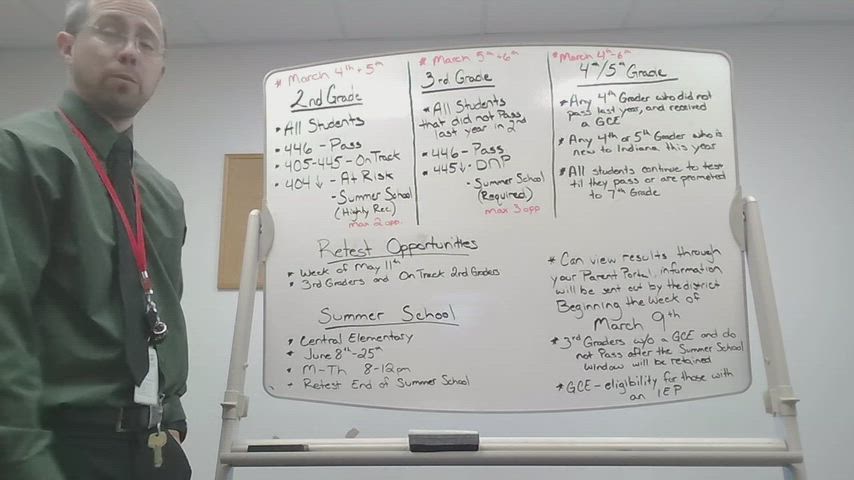 * March 4th + 5th
2nd Grade
• All Students
• 446 - Pass
• 405-445 - On Track
• 404 ↓ - At Risk
- Summer School
(Highly Rec.)
max 2 opp.
* March 5th + 6th
3rd Grade
• All Students
that did not Pass
last year in 2nd
• 446 - Pass
• 445 ↓ - DNP
- Summer School
(Required)
max 3 opp.
* March 4th - 6th
4th/5th Grade
* Any 4th Grader who did not
pass last year, and received
a GCE
* Any 4th or 5th Grader who is
new to Indiana this year
* All students continue to test
til they pass or are promoted
to 7th Grade
Retest Opportunities
* Week of May 11th
* 3rd Graders and On Track 2nd Graders
Summer School
• Central Elementary
• June 8th-25th
• M-Th 8-12pm
• Retest End of Summer School
* Can view results through
your Parent Portal, information
will be sent out by the district
Beginning the week of
March 9th
* 3rd Graders w/o a GCE and do
not Pass after the Summer School
window will be retained
* GCE - eligibility for those with
an IEP